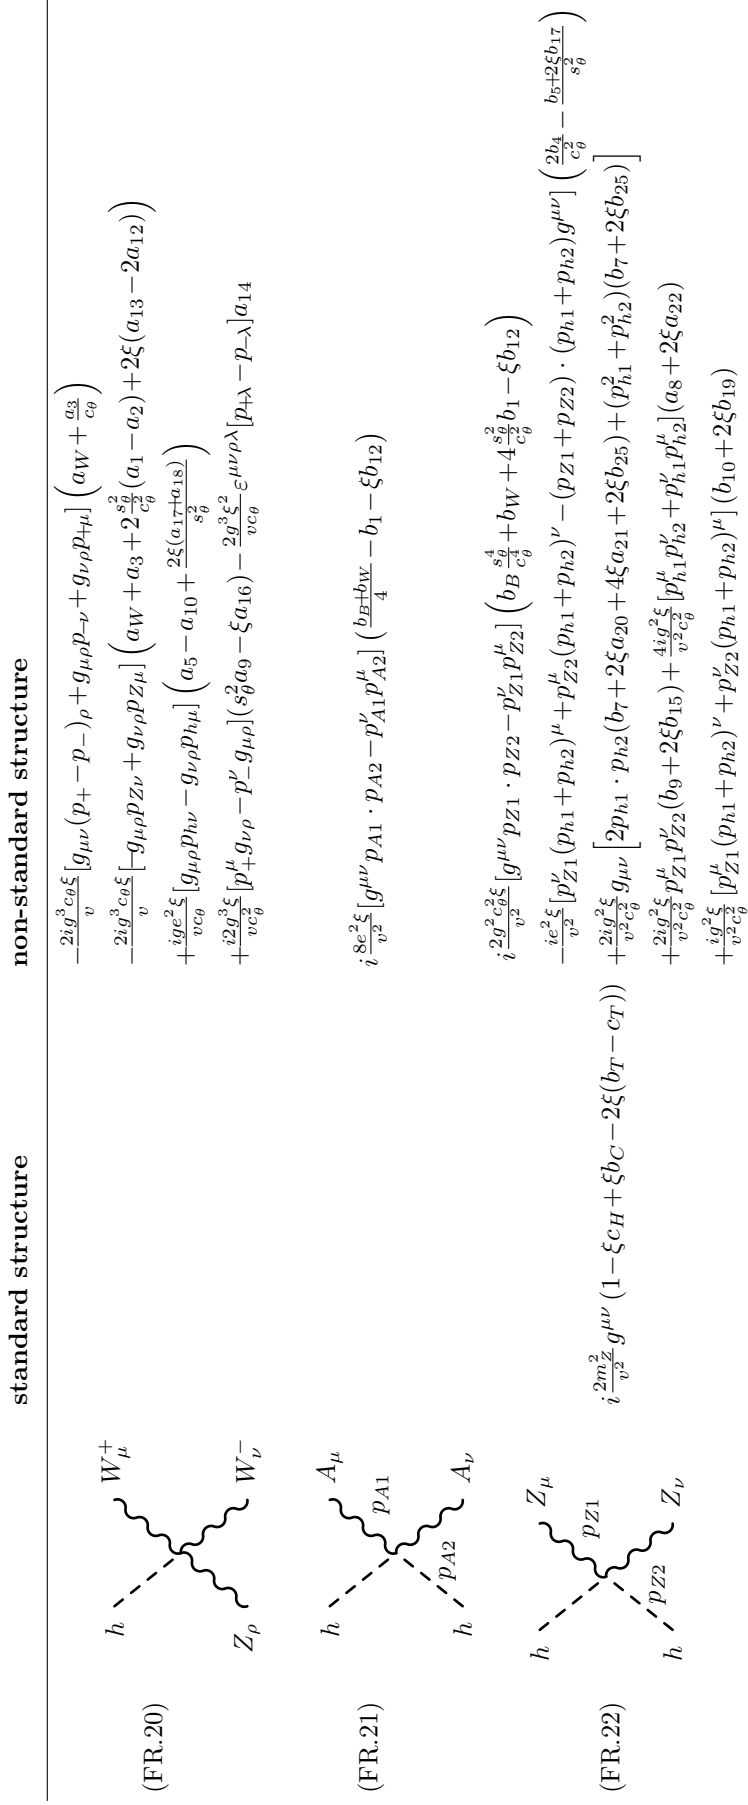 standard structure non-standard structure
(FR.20)
h
W_μ^+
Z_ρ
W_ν^-
−\frac{2ig^3c_θξ}{v}[g_{μν}(p_+−p_−)_ρ+g_{μρ}p_{−ν}+g_{νρ}p_{+μ}](a_W+\frac{a_3}{c_θ})
−\frac{2ig^3c_θξ}{v}[−g_{μρ}p_{Zν}+g_{νρ}p_{Zμ}](a_W+a_3+2\frac{s_θ^2}{c_θ^2}(a_1−a_2)+2ξ(a_{13}−2a_{12}))
+\frac{ige^2ξ}{vc_θ}[g_{μρ}p_{hν}−g_{νρ}p_{hμ}](a_5−a_{10}+\frac{2ξ(a_{17}+a_{18})}{s_θ^2})
+\frac{i2g^3ξ}{vc_θ^2}[p_+^μg_{νρ}−p_−^νg_{μρ}](s_θ^2a_9−ξa_{16})−\frac{2g^3ξ^2}{vc_θ}ε^{μνρλ}[p_{+λ}−p_{−λ}]a_{14}
(FR.21)
h
A_μ
p_{A1}
p_{A2}
h
A_ν
i\frac{8e^2ξ}{v^2}[g^{μν}p_{A1}·p_{A2}−p_{A1}^νp_{A2}^μ](\frac{b_B+b_W}{4}−b_1−ξb_{12})
(FR.22)
h
Z_μ
p_{Z1}
p_{Z2}
h
Z_ν
i\frac{2m_Z^2}{v^2}g^{μν}(1−ξc_H+ξb_C−2ξ(b_T−c_T))
i\frac{2g^2c_θ^2ξ}{v^2}[g^{μν}p_{Z1}·p_{Z2}−p_{Z1}^νp_{Z2}^μ](b_B\frac{s_θ^4}{c_θ^4}+b_W+4\frac{s_θ^2}{c_θ^2}b_1−ξb_{12})
−\frac{ie^2ξ}{v^2}[p_{Z1}^ν(p_{h1}+p_{h2})^μ+p_{Z2}^μ(p_{h1}+p_{h2})^ν−(p_{Z1}+p_{Z2})·(p_{h1}+p_{h2})g^{μν}](\frac{2b_4}{c_θ^2}−\frac{b_5+2ξb_{17}}{s_θ^2})
+\frac{2ig^2ξ}{v^2c_θ^2}g_{μν}[2p_{h1}·p_{h2}(b_7+2ξa_{20}+4ξa_{21}+2ξb_{25})+(p_{h1}^2+p_{h2}^2)(b_7+2ξb_{25})]
+\frac{2ig^2ξ}{v^2c_θ^2}p_{Z1}^μp_{Z2}^ν(b_9+2ξb_{15})+\frac{4ig^2ξ}{v^2c_θ^2}[p_{h1}^μp_{h2}^ν+p_{h1}^νp_{h2}^μ](a_8+2ξa_{22})
+\frac{ig^2ξ}{v^2c_θ^2}[p_{Z1}^μ(p_{h1}+p_{h2})^ν+p_{Z2}^ν(p_{h1}+p_{h2})^μ](b_{10}+2ξb_{19})